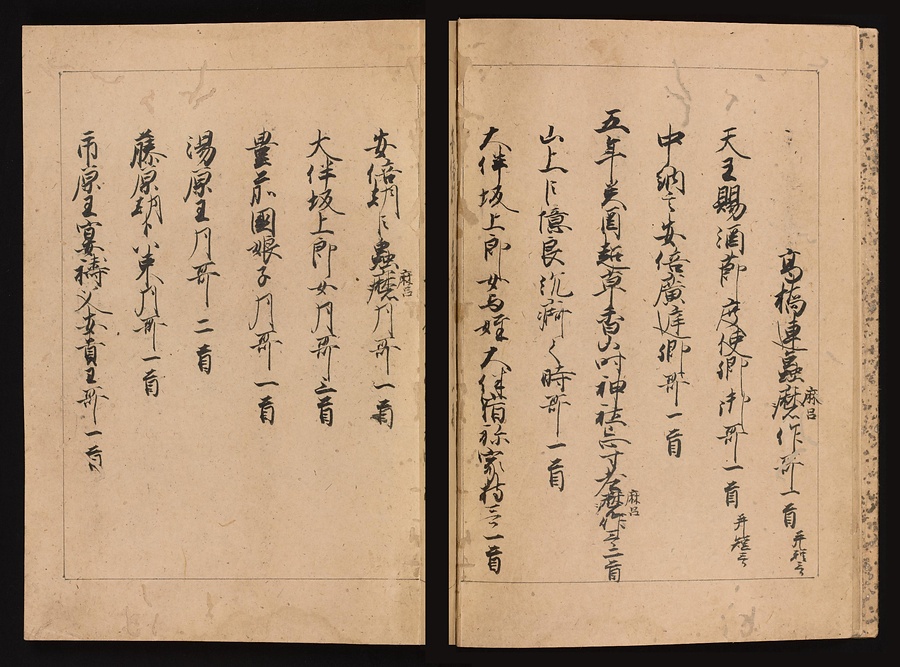 高橋連蟲麿作哥一首 并短哥
麻呂
天王賜酒節度使卿御哥一首 并短哥
中納言安倍廣庭卿哥一首
五年癸酉超草香山时神社忌寸老麿作哥二首
麻呂
山上臣憶良沉痾之時哥一首
大伴坂上郎女与姪大伴宿祢家持哥一首
安倍朝臣蟲麿月哥一首
麻呂
大伴坂上郎女月哥三首
豊前國娘子月哥一首
湯原王月哥二首
藤原朝臣八束月哥一首
市原王宴祷父安貴王哥一首